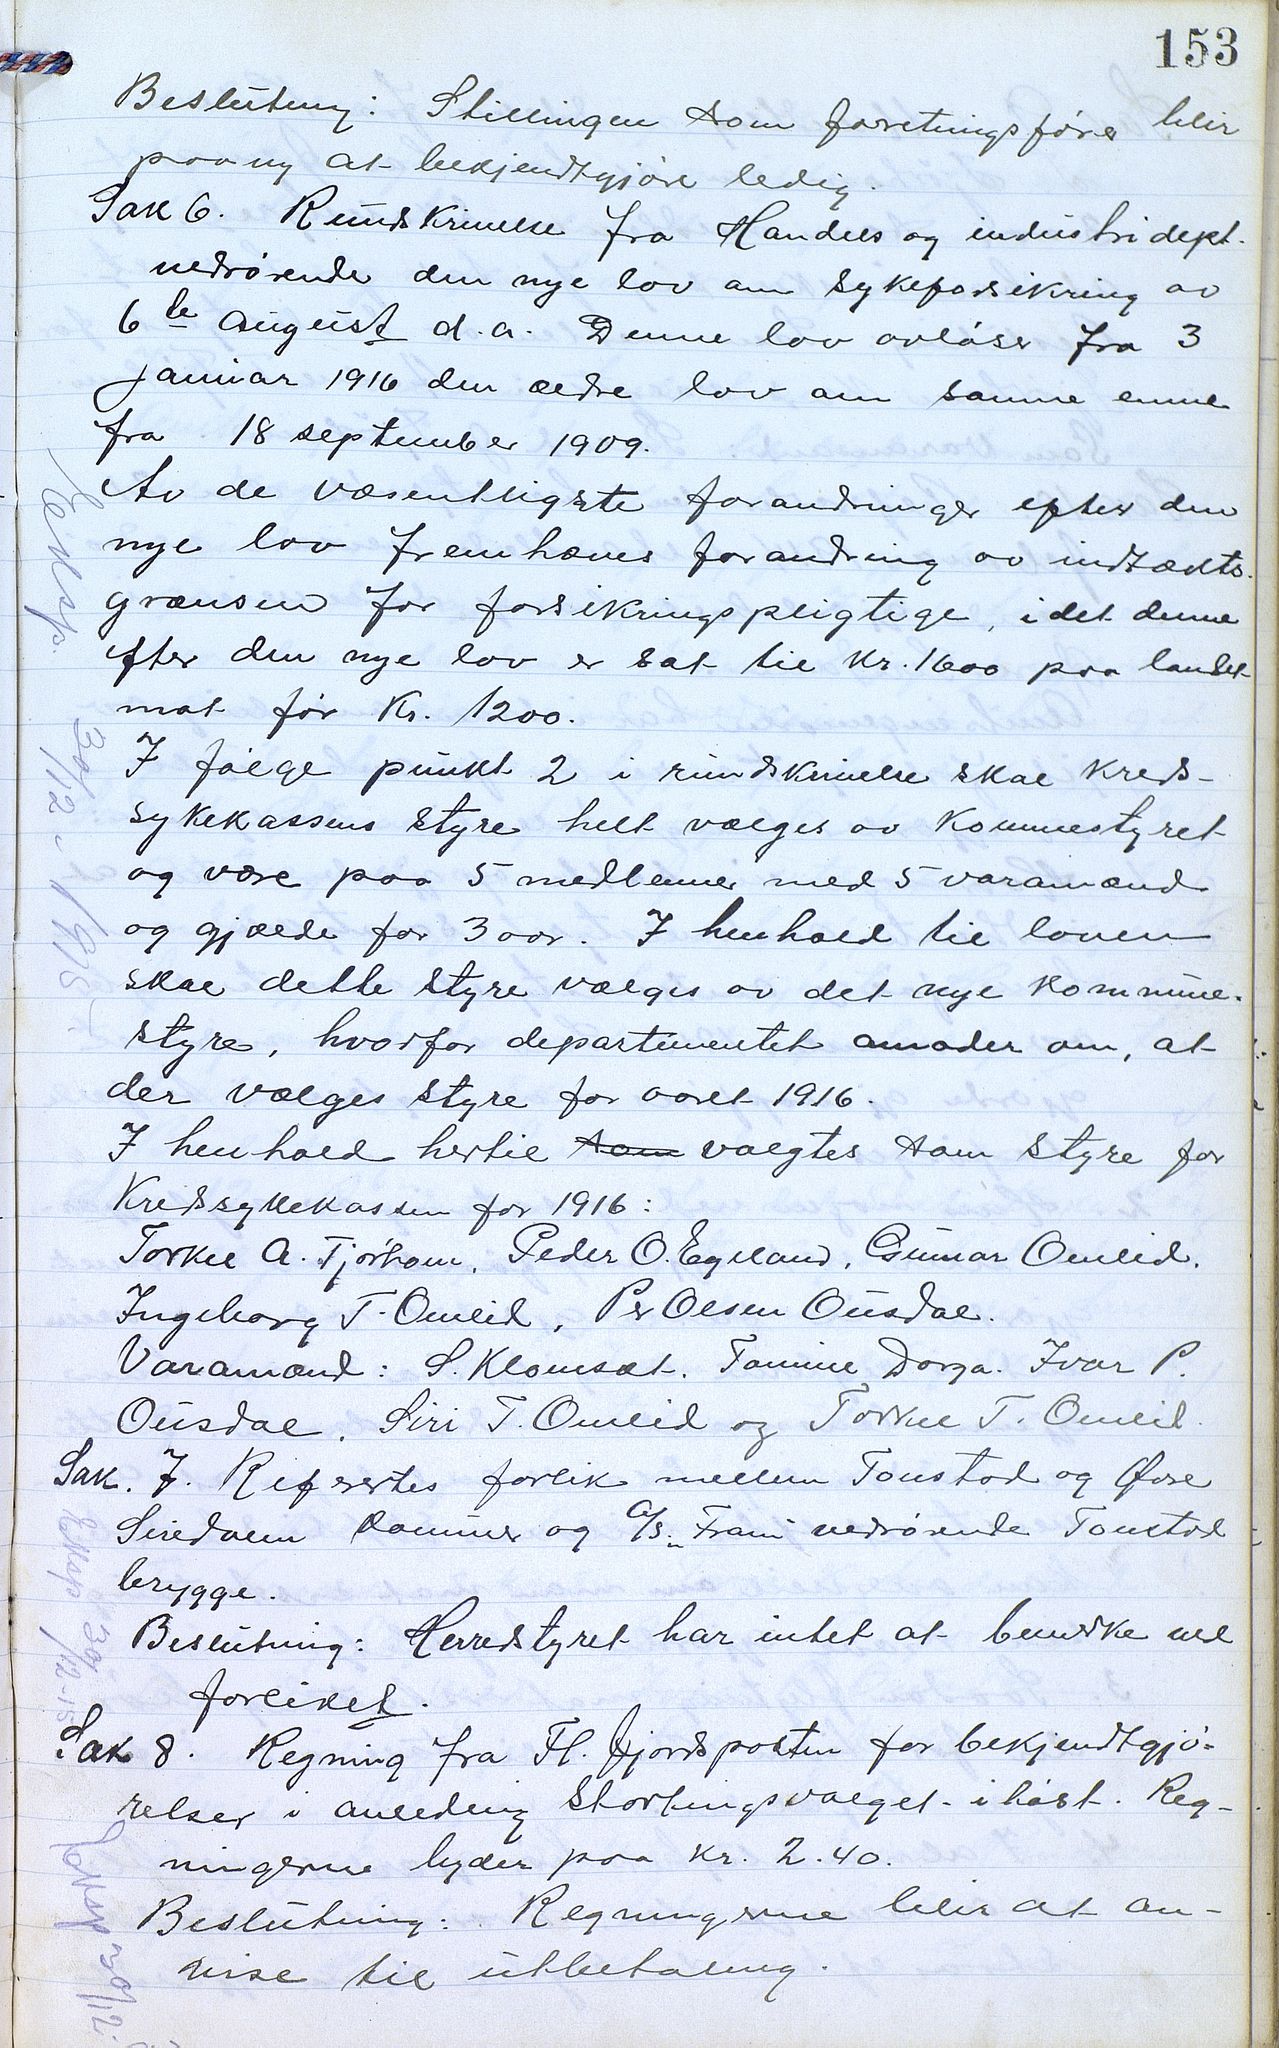 153
Beslutning: Stillingen som forretningsfører blir
paany at bekjendtgjøre ledig.
Sak 6. Rundskrivelse fra Handels og industridept.
vedrørende den nye lov om sykeforsikring av
6te august d.a. Denne lov avløser fra 3
januar 1916 den ældre lov om samme emne
fra 18 september 1909.
Av de væsentligste forandringer efter den
nye lov fremhæves forandring av indtækts-
grænsen for forsikringspligtige, idet denne
efter den nye lov er sat til Kr. 1600 paa landet
mot før Kr. 1200.
I følge punkt 2 i rundskrivelse skal kreds-
sykekassens styre helt vælges av Kommestyret
og være paa 5 medlemmer med 5 varamænd
og gjælde for 3 aar. I henhold til loven
skal dette styre vælges av det nye kommune-
styre, hvorfor departementet anmoder om, at
der vælges styre for aaret 1916.
I henhold hertil som valgtes som styre for
Kredssykekassen for 1916:
Torkel A. Tjørhom, Peder O. Egeland, Gunnar Omlid.
Ingeborg T. Omlid, Per Olsen Ousdal.
Varamænd: S. Klomsæt. Tomine Dorga. Ivar P.
Ousdal, Siri T. Omlid og Torkel T. Omlid.
Sak. 7. Refereertes forlik mellem Tonstad og Øvre
Siredalen Kommuner og A/S. "Fram" vedrørende Tonstad
brygge.
Beslutning: Herredstyret har intet at bemerke ved
forliket.
Sak 8. Regning fra Fl. Fjordsposten for bekjendtgjø-
relser i anledning Stortingsvalget i høst. Reg-
ningerne lyder paa kr. 2.40.
Beslutning: Regningerne blir at an-
vise til utbetaling.
Eksp. 30/12 - 1915.
Eksp 30/12-15
Eksp 30/12.